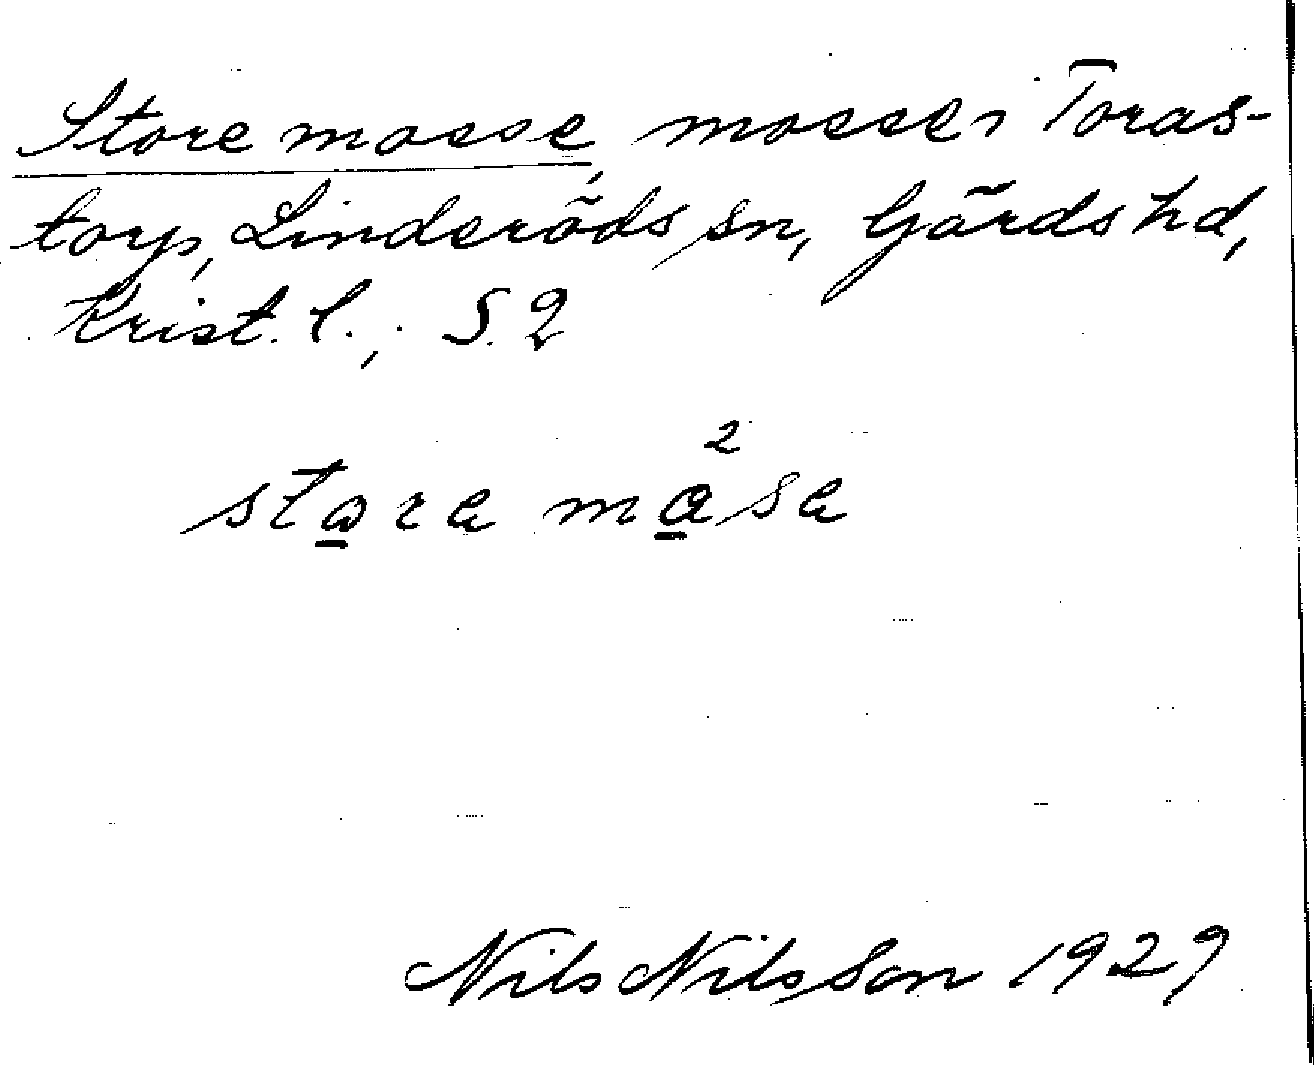 Store mosse, mosse i Toras-
torp, Linderöds sn, Gärds hd,
Krist. l.; S. 2
stora måsa
2
Nils Nilsson 1929